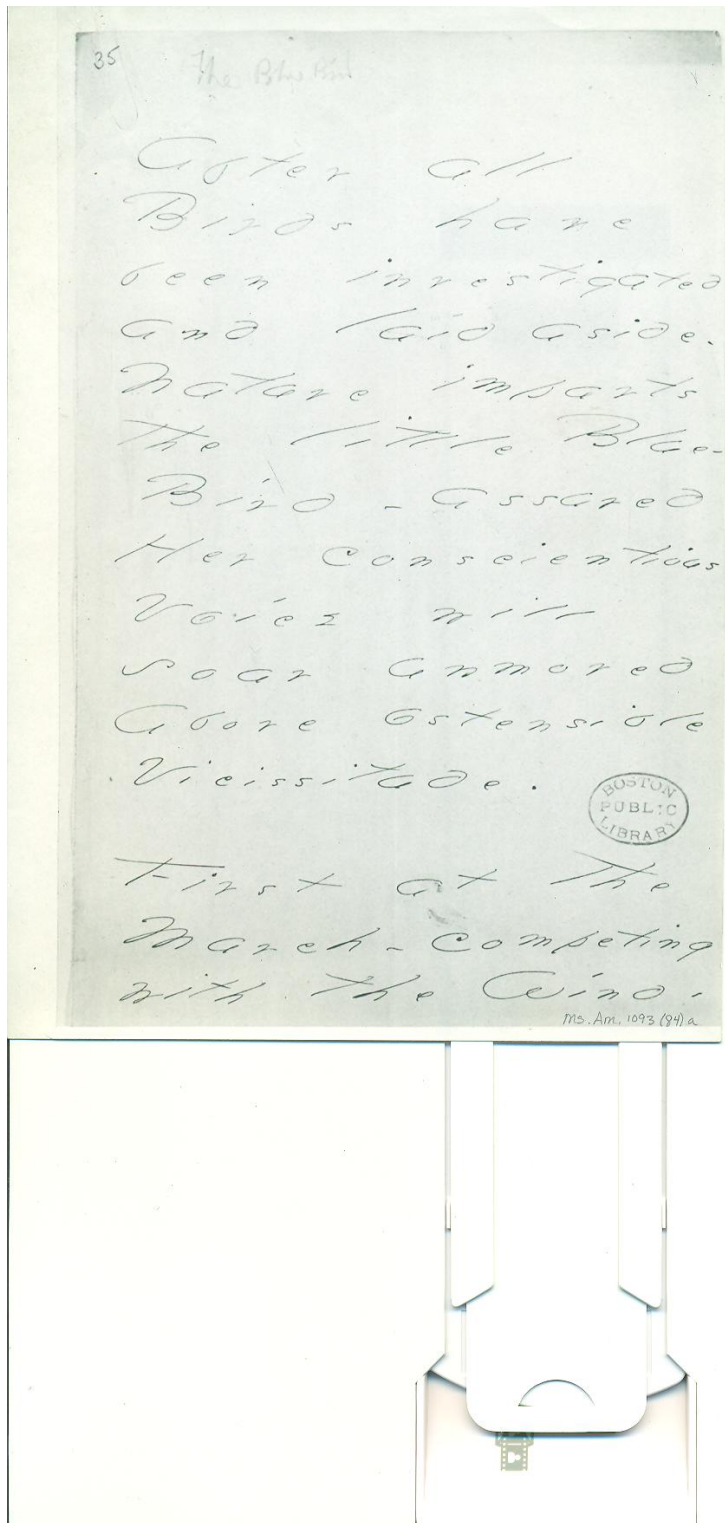 35
The Blue Bird
After all
Birds have
been investigated
and laid aside.
Nature imparts
the little Blue-
Bird - assured
Her conscientious
Voice will
soar unmoved
Above ostensible
Vicissitude.
BOSTON
PUBLIC
LIBRARY
First at the
March - competing
with the Wind.
Ms. Am. 1093 (84) a